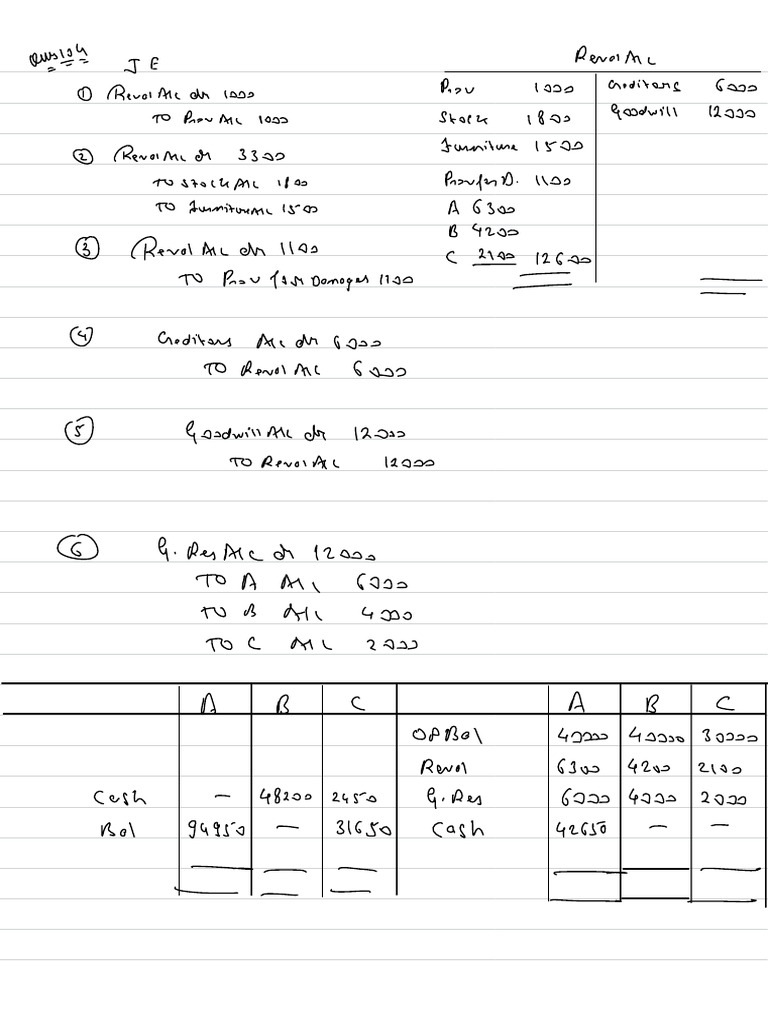 Ques 104
J E
① Reval A/c dr 1000
TO Prov A/c 1000
② Reval A/c dr 3300
TO Stock A/c 1800
TO Furniture A/c 1500
③ Reval A/c dr 1100
TO Prov for Damages 1100
Reval A/c
Prov 1000 Creditors 6000
Stock 1800 Goodwill 12000
Furniture 1500
Prov for D. 1100
A 6300
B 4200
C 2100 12600
④ Creditors A/c dr 6000
TO Reval A/c 6000
⑤ Goodwill A/c dr 12000
TO Reval A/c 12000
⑥ G. Res A/c dr 12000
TO A A/c 6000
TO B A/c 4000
TO C A/c 2000
A B C A B C
OP Bal 40000 40000 30000
Reval 6300 4200 2100
Cash – 48200 2450 G. Res 6000 4000 2000
Bal 94950 – 31650 Cash 42650 – –